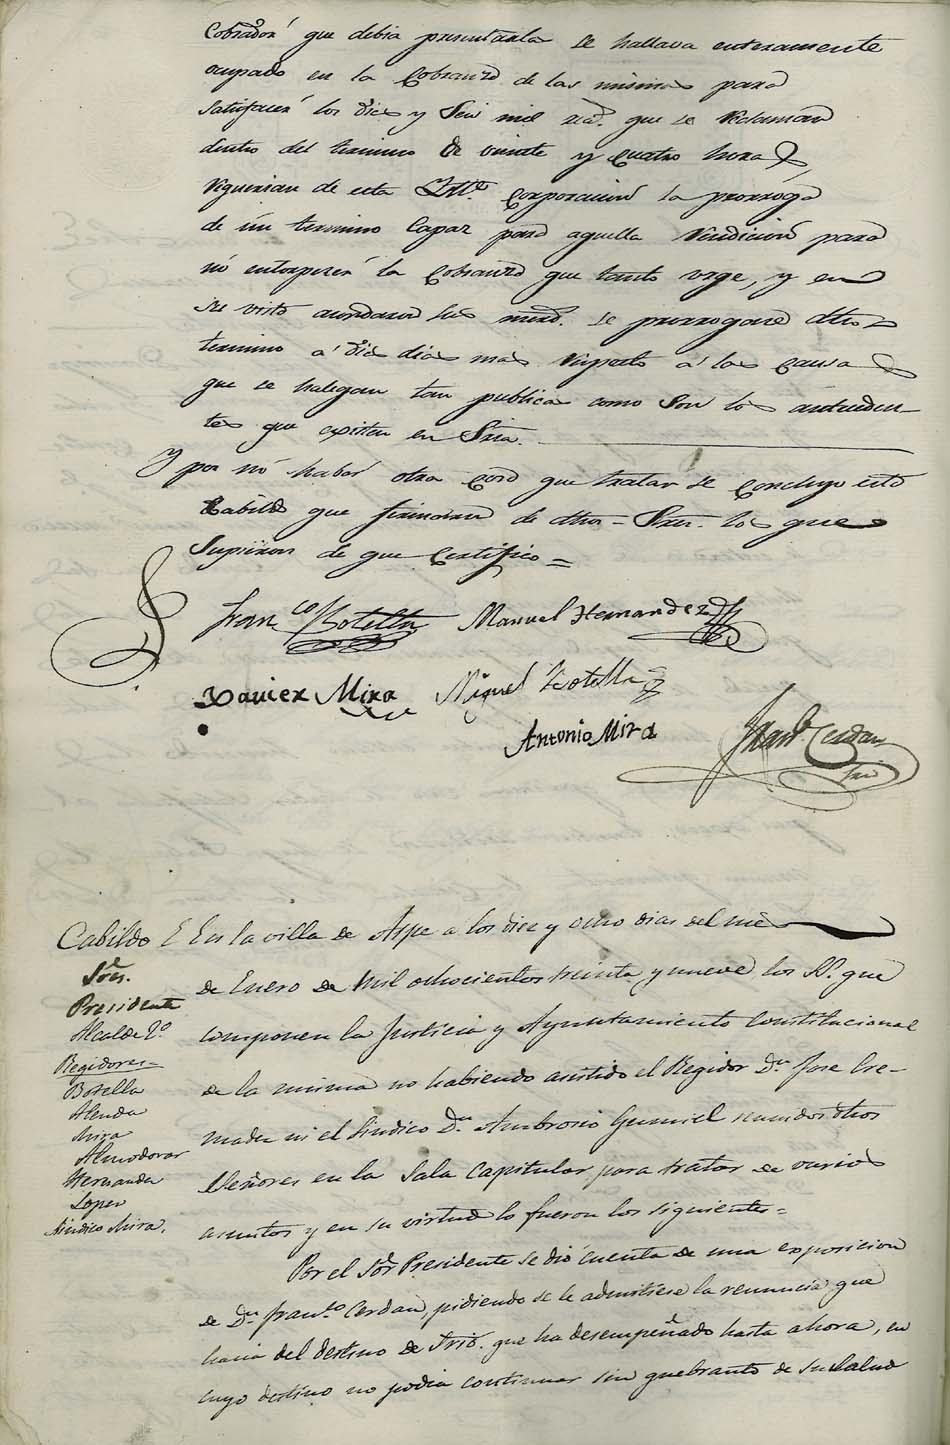 Cobrador que debia presentarla se hallava enteramente
ocupado en la Cobranza de las mismas para
satisfacer los dies y Seis mil rs. que se reclaman
dentro del termino de veinte y cuatro horas
requerian de esta Iltre. Corporacion la prorroga
de un termino Capaz para aquella rendicion para
no entorpecer la Cobranza que tanto urge, y en
su visto acordaron sus mrds. se prorrogase dho
termino a dies dias mas respecto a las causas
que se halegan tan publicas como Son los anteceden-
tes que existen en Sria.
Y por no haber otra cosa que tratar se concluyo este
Cabildo que firmaron de dhos Sres. los que
Supieron de que Certifico =
Franco Botella Manuel Hernandez
Xavier Mira Miguel Botella
Antonio Mira Franco. Cerdan
Srio
Cabildo En la villa de Aspe a los diez y ocho dias del mes
Sres.
Presidente
Alcalde 2o
Regidores
Botella
Alenda
Mira
Almodovar
Hernandez
Lopez
Sindico Mira.
de Enero de mil ochocientos treinta y nueve los SS. que
componen la Justicia y Ayuntamiento Constitucional
de la misma no habiendo asistido el Regidor Dn. Jose Cre-
mades ni el Sindico Dn. Ambrosio Gumiel reunidos dhos
Señores en la Sala Capitular para tratar de varios
asuntos y en su virtud lo fueron los siguientes =
Por el Sor Presidente se dio cuenta de una exposicion
de Dn. Franco. Cerdan, pidiendo se le admitiese la renuncia que
hacia del destino de Srio. que ha desempeñado hasta ahora, en
cuyo destino no podia continuar sin quebranto de su salud